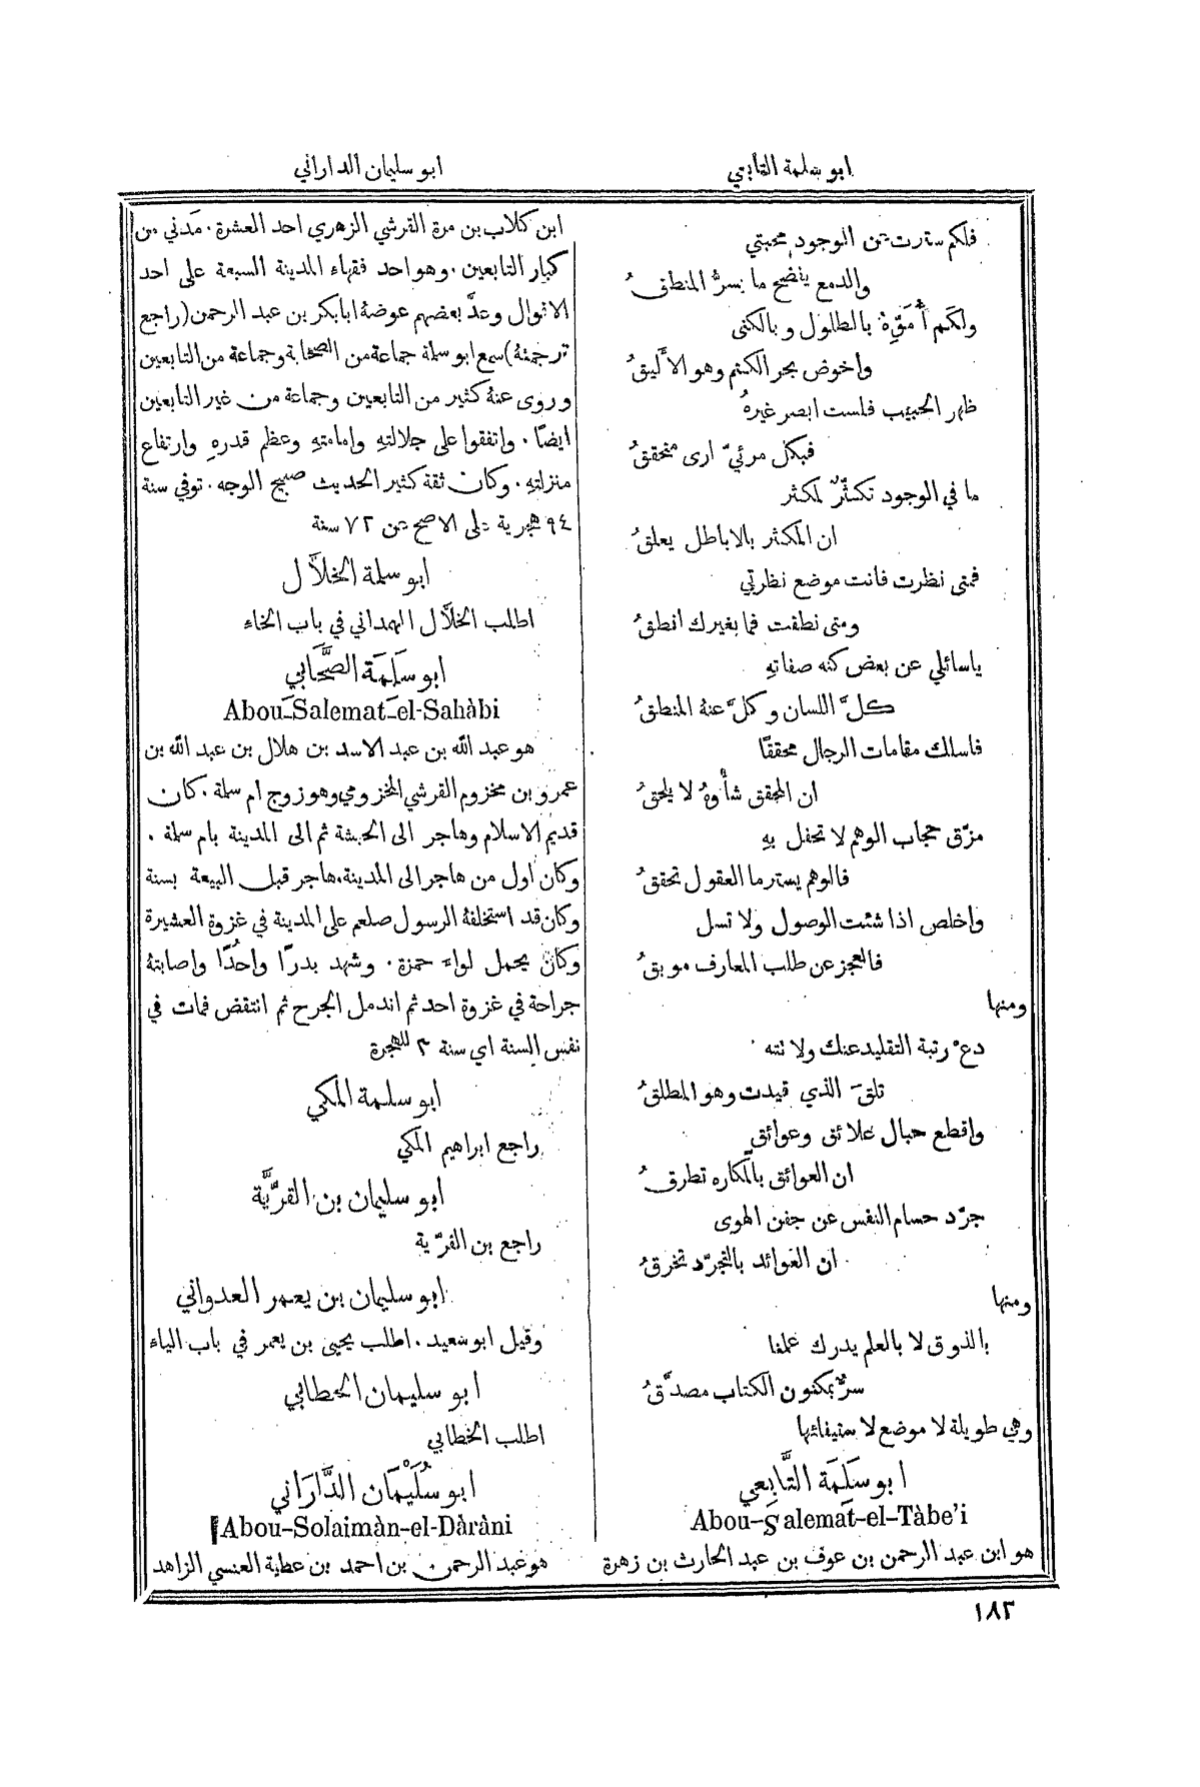 ابو سلمة التابعي
ابو سليمان الداراني
فلكم سترت عن الوجود محبتي
والدمع يفضح ما يسرُّ المنطقُ
ولكم أُمَوِّهُ بالطلول وبالكنى
واخوض بحر الكتم وهو الأَليقُ
ظهر الحبيب فلست ابصر غيرهُ
فبكل مرئيّ ارى متحققُ
ما في الوجود تكثّرٌ لمكثر
ان المكثر بالاباطل يعلقُ
فمتى نظرت فانت موضع نظرتي
ومتى نطقت فما بغيرك انطقُ
ياسائلي عن بعض كنه صفاتهِ
كلَّ اللسان وكلَّ عنهُ المنطقُ
فاسلك مقامات الرجال محققًا
ان المحقق شأْوهُ لا يلحقُ
مزّق حجاب الوهم لا تحفل بهِ
فالوهم يستر ما العقول تحققُ
واخلص اذا شئت الوصول ولا تسل
فالعجز عن طلب المعارف موبقُ
ومنها
دعْ رتبة التقليد عنك ولا تته
تلقَ الذي قيدت وهو المطلقُ
واقطع حبال علائق وعوائق
ان العوائق بالمكاره تطرقُ
جرّد حسام النفس عن جفن الهوى
ان العوائد بالتجرّد تخرقُ
ومنها
بالذوق لا بالعلم يدرك علمنا
سرٌّ بمكنون الكتاب مصدَّقُ
وهي طويلة لا موضع لاستيفائها
ابو سَلَمَة التَّابِعي
Abou-Salemat-el-Tàbe'i
هو ابن عبد الرحمن بن عوف بن عبد الحارث بن زهرة
ابن كلاب بن مرة القرشي الزهري احد العشرة. مَدني من
كبار التابعين. وهو احد فقهاء المدينة السبعة على احد
الاقوال وعدَّ بعضهم عوضهُ ابا بكر بن عبد الرحمن (راجع
ترجمتهُ) سمع ابو سلمة جماعة من الصحابة وجماعة من التابعين
وروى عنهُ كثير من التابعين وجماعة من غير التابعين
ايضًا. واتفقوا على جلالتهِ وإمامتهِ وعظم قدرهِ وارتفاع
منزلتهِ. وكان ثقة كثير الحديث صبيح الوجه. توفي سنة
٩٤ هجرية على الاصح عن ٧٢ سنة
ابو سلمة الخلَّال
اطلب الخلَّال الهمداني في باب الخاء
ابو سَلَمَة الصَّحَابي
Abou-Salemat-el-Sahàbi
هو عبد الله بن عبد الاسد بن هلال بن عبد الله بن
عمرو بن مخزوم القرشي المخزومي وهو زوج ام سلمة. كان
قديم الاسلام وهاجر الى الحبشة ثم الى المدينة بام سلمة.
وكان اول من هاجر الى المدينة. هاجر قبل البيعة بسنة
وكان قد استخلفهُ الرسول صلعم على المدينة في غزوة العشيرة
وكان يحمل لواء حمزة. وشهد بدرًا وأُحُدًا واصابتهُ
جراحة في غزوة احد ثم اندمل الجرح ثم انتقض فمات في
نفس السنة اي سنة ٣ للهجرة
ابو سلمة المكي
راجع ابراهيم المكي
ابو سليمان بن القرِّيَّة
راجع بن القرّية
ابو سليمان بن يعمر العدواني
وقيل ابو سعيد. اطلب يحيى بن يعمر في باب الياء
ابو سليمان الخطابي
اطلب الخطابي
ابو سُلَيْمَان الدَّارَاني
Abou-Solaimàn-el-Dàràni
هو عبد الرحمن بن احمد بن عطية العنسي الزاهد
١٨٢